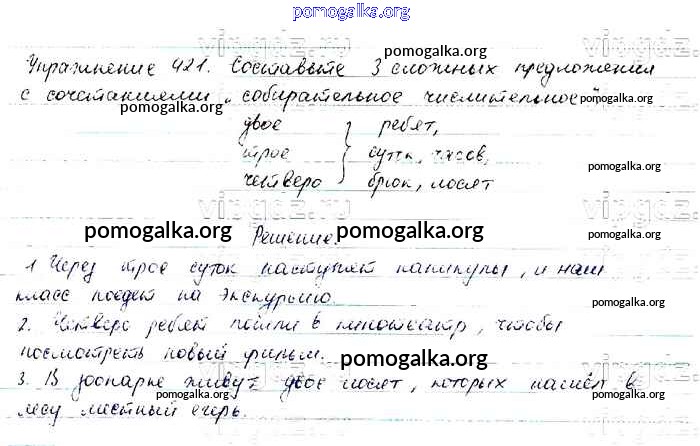 pomogalka.org
pomogalka.org
Упражнение 421. Составьте 3 сложных предложения
с сочетаниями „собирательное числительное"
pomogalka.org
pomogalka.org
двое } ребят,
трое } суток, часов,
четверо } брюк, лосят
pomogalka.org
pomogalka.org
pomogalka.org
pomogalka.org
pomogalka.org
Решение.
1 Через трое суток наступят каникулы, и наш
класс поедет на экскурсию.
pomogalka.org
2. Четверо ребят пошли в кинотеатр, чтобы
посмотреть новый фильм.
pomogalka.org
pomogalka.org
3. В зоопарке живут двое лосят, которых нашёл в
лесу местный егерь.